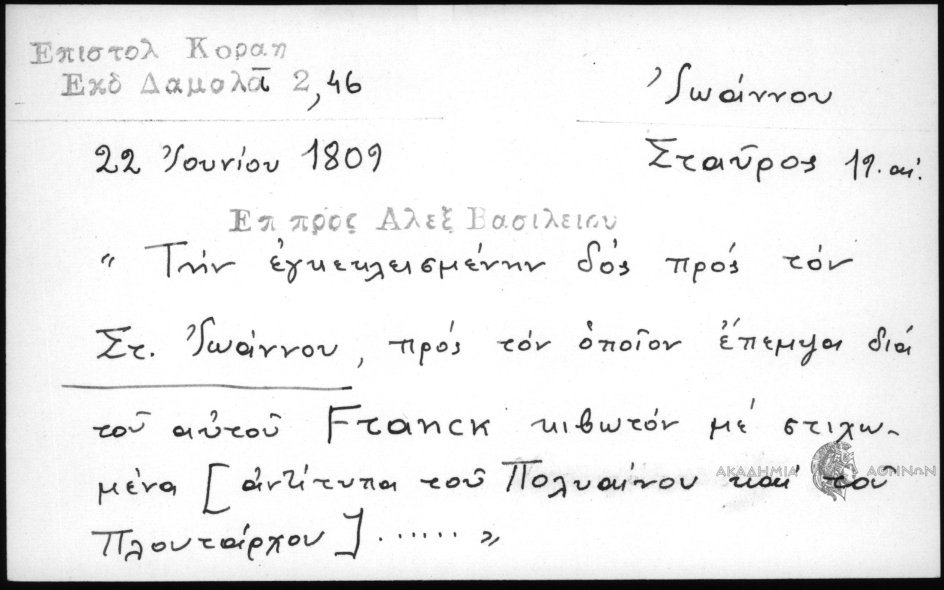 Επιστολ Κοραη
Εκδ Δαμαλᾶ 2,46
Ἰωάννου
22 Ἰουνίου 1809
Σταῦρος 19. αἰ.
Επ προς Αλεξ Βασιλειου
“ Τήν ἐγκεκλεισμένην δός πρός τόν
Στ. Ἰωάννου, πρός τόν ὁποῖον ἔπεμψα διά
τοῦ αὐτοῦ Franck κιβωτόν μέ στιχω-
μένα [ ἀντίτυπα τοῦ Πολυαίνου καί τοῦ
Πλουτάρχου ] ...... »
ΑΚΑΔΗΜΙΑ ΑΘΗΝΩΝ